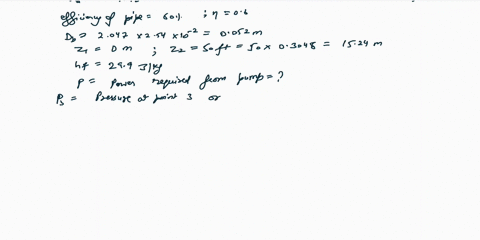 efficiency of pipe = 60% ; η = 0.6
D₂ = 2.067 × 2.54 × 10⁻² = 0.052 m
Z₁ = 0 m ; Z₂ = 50 ft = 50 × 0.3048 = 15.24 m
hf = 29.9 J/kg
P = Power required from pump = ?
P₃ = Pressure at point 3 or